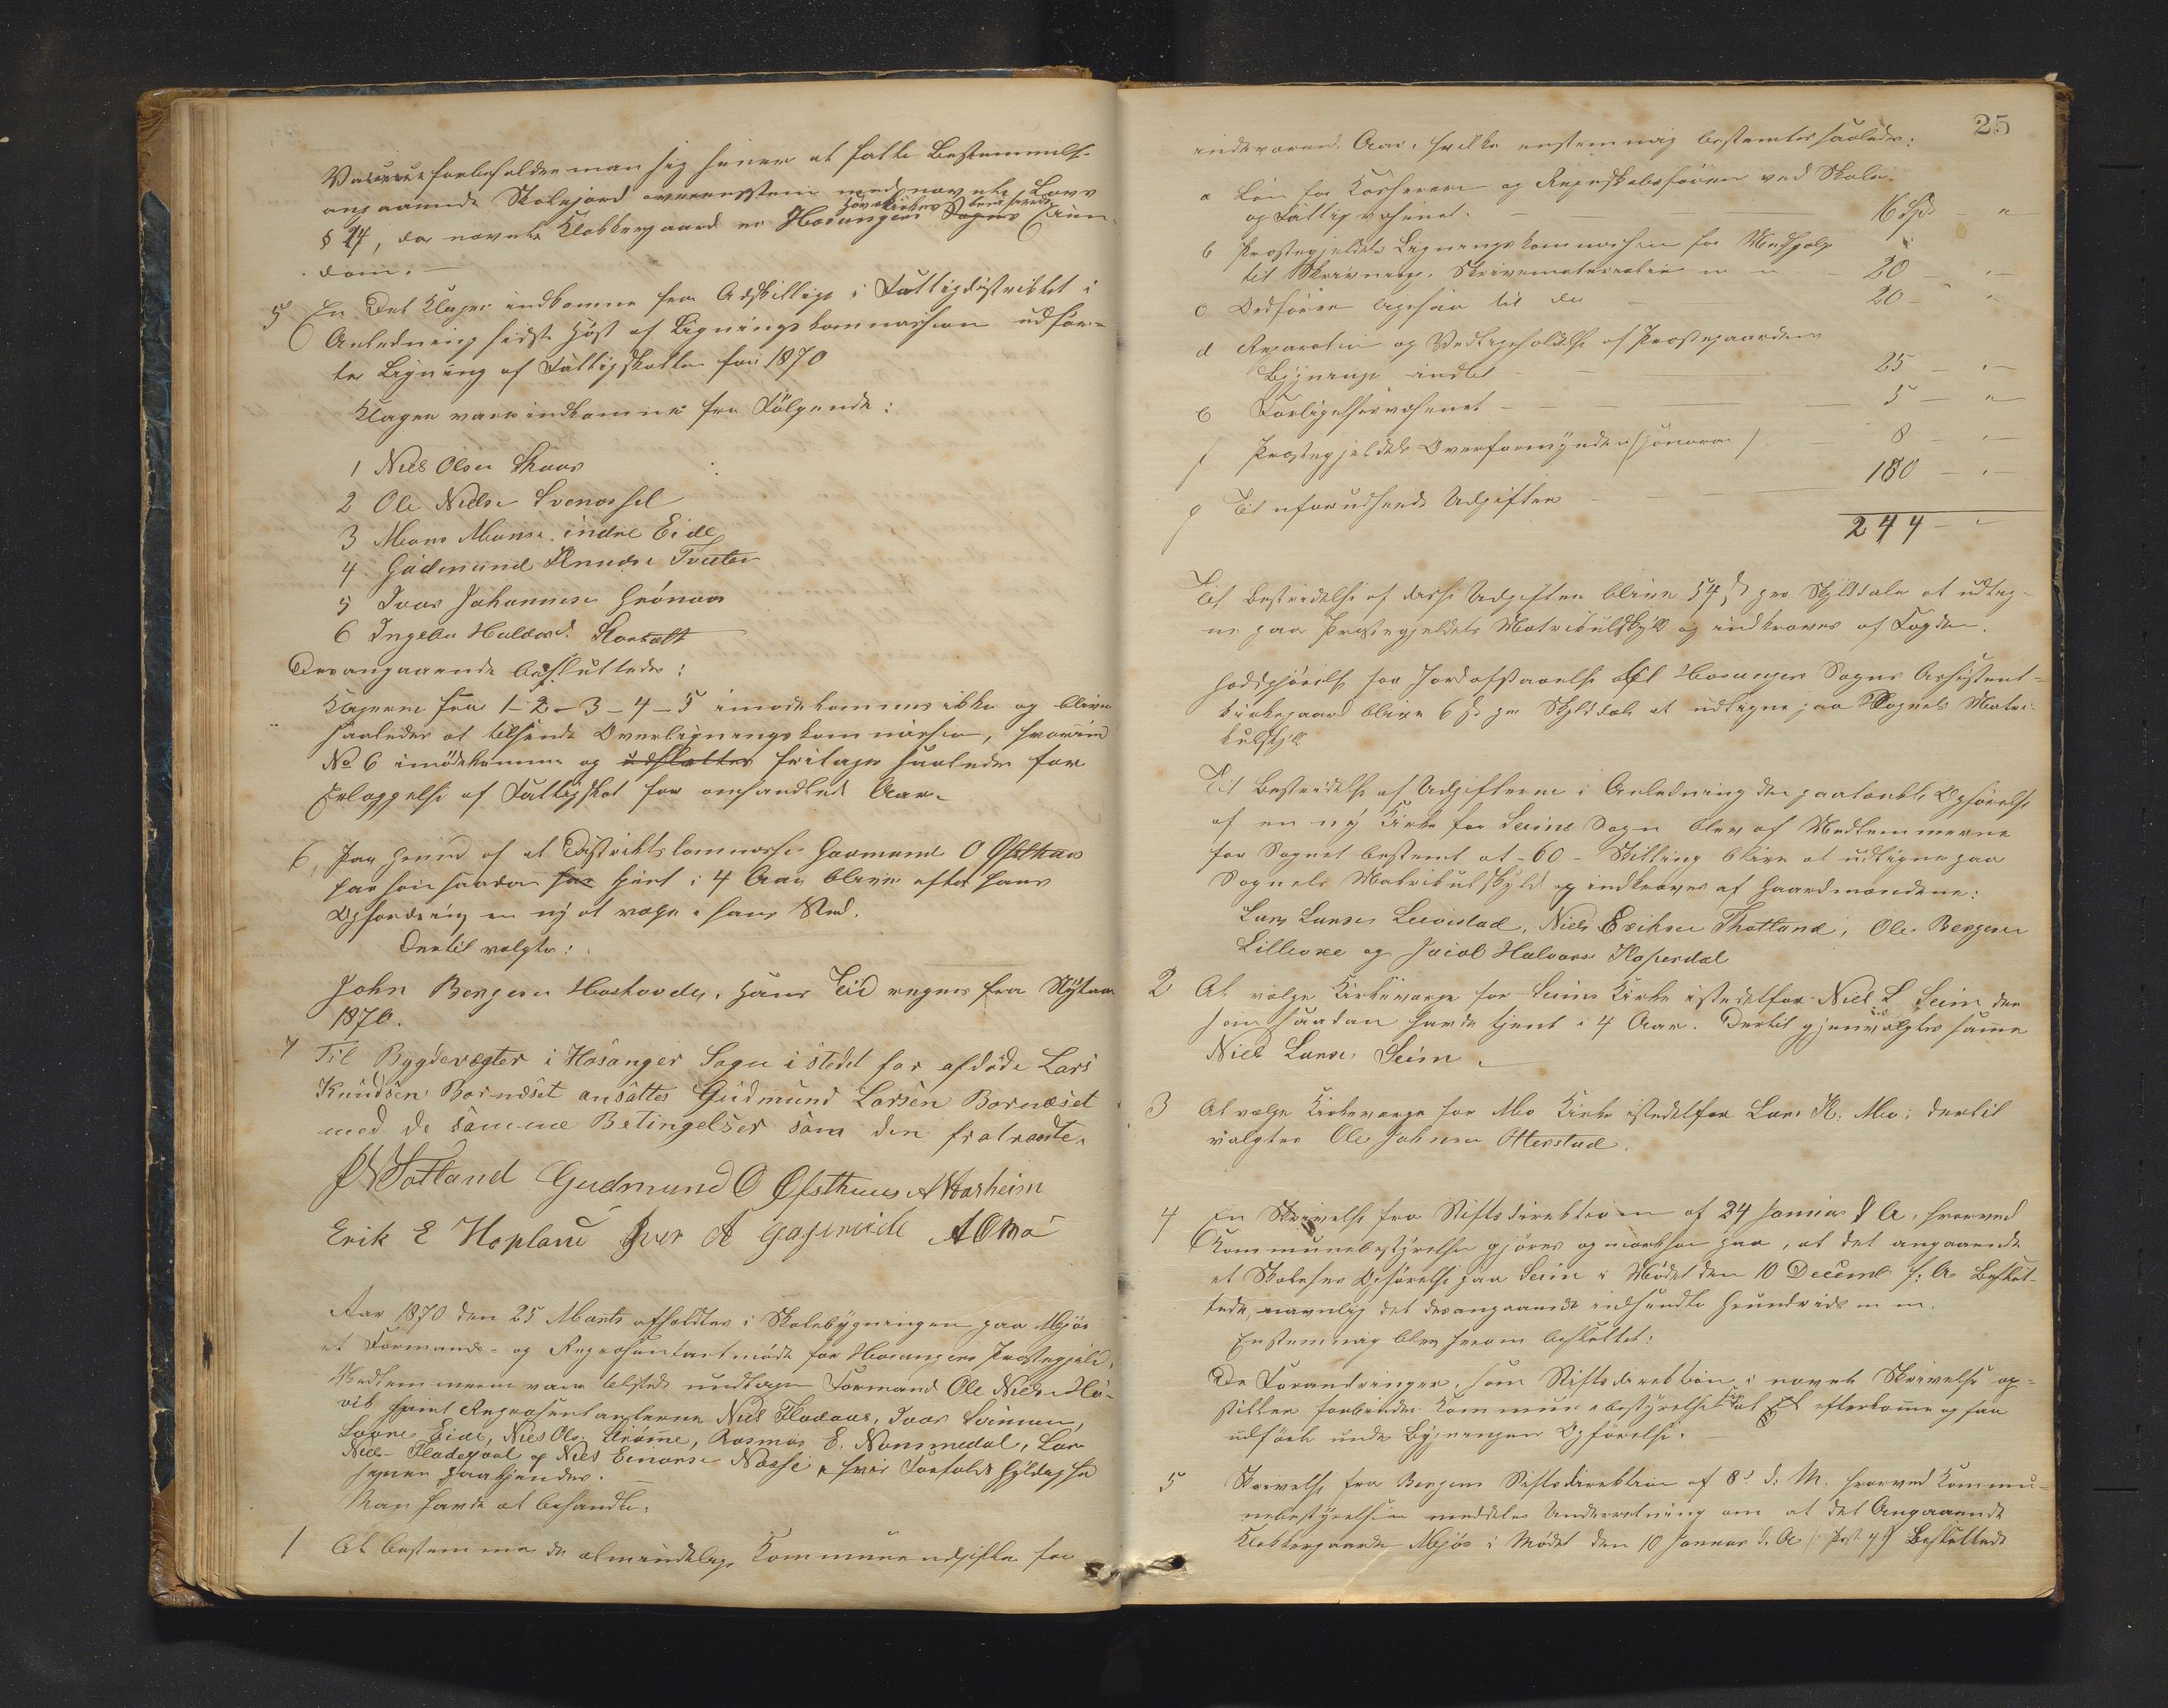 forbeholder man sig senere at fatte Bestemmelse
angaaende Skolejord overensstem med nævnte Lovs
§ 24, da nævnte Klokkergaard er Hosangers Sogns Eien-
dom. —
5 En Del Klager indkomne fra Adskillige i Fattigdistriktet i
Anledning sidste Høst af Ligningskommissionen udfør-
te Ligning af Fattigskatten for 1870
Klager vare indkomne fra Følgende:
1 Niels Olsen
2 Ole Nielse
3 Mons Monse indre Eide
4 Gudmund Knudse Tveten
5 Ivar Johannese Grønaas
6 Ingebr Haldord.
Desangaaende besluttedes:
Klagerne fra 1-2-3-4-5 imødekommes ikke og bliver
saaledes at tilsende Overligningskommissionen, hvorimod
No 6 imødekommes og udsættes fritages saaledes for
Erlæggelse af Fattigskat for omhandlede Aar.
6, Paa Grund af at Distriktskommissær Gudmund O Øfsthuus
har som saadan har tjent i 4 Aar bliver efter hans
Opfordring en ny at vælge i hans Sted.
Dertil valgtes:
John Bergesen Hoshovde, hans Tid regnes fra Nytaar
1870.
7 Til Bygdevægter i Hosanger Sogn i stedet for afdøde Lars
Knudsen Bornæset ansattes Gudmund Larsen Bornæset
med de samme Betingelser som den fratraadte.
Gudmund O Øfsthuus
Erik E Hopland Iver A A O Mo
Aar 1870 den 25 Marts afholdtes i Skolebygningen paa Mjøs
et Formands- og Repræsentantmøde for Hosangers Præstegjeld.
Medlemmerne vare tilstede undtagen Formand Ole Nielse
samt Repræsentanterne Niels Flodaas, Ivar
Eide, Niels Ols. Strømme, Rasmus E. Nonsmedal, Lars
Niels og Niels Einarse hvis Forfalds Gyldighed
senere paakjendes.
Man havde at behandle:
1 At bestemme de almindelige Kommuneudgifter for
25
indeværende Aar, hvilke enstemmig bestemtes saaledes:
a Løn for Kasserer og Regnskabsfører ved Skole-
og Fattigvæsenet. — 16 Spd — "
b Præstegjeldets Ligningskommission for Medhjælp
til Skrivning, Skrivematerialier m m — 20 — "
c Ordfører ligesaa til do — 20 — "
d Reparation og Vedligeholdelse af Præstegaardens
Bygninger indtil — 25 — "
e Forligelsesvæsenet — 5 — "
f Præstegjeldets Overformynderi (Honorar) 8 — "
g Til uforudseede Udgifter — 180 — "
244 — "
Til Bestridelse af disse Udgifter bliver 54 s pr Skylddaler at udlig-
ne paa Præstegjeldets Matrikulskyld og indkræves af Fogden.
Godtgjørelse for Jordafstaaelse til Hosangers Sogns Assistent-
kirkegaard bliver 6 s pr Skylddaler at udligne paa Sognets Matri-
kulskyld
Til Bestridelse af Udgifterne i Anledning den paatænkte Opførelse
af en ny Kirke for Seims Sogn blev af Medlemmerne
for Sognet bestemt at -60- Skilling bliver at udligne paa
Sognets Matrikulskyld og indkræves af Gaardmændene:
Lars Larsen Leivestad, Niels Eriksen Thotland, Ole Bergesen
og Jacob Halvorse
2 At vælge Kirkeværge for Seims Kirke istedetfor Niels L Seim der
som saadan havde tjent i 4 Aar. Dertil gjenvalgtes samme
Niels Larse Seim.
3 At vælge Kirkeværge for Mo Kirke istedetfor Lars K. Mo; dertil
valgtes Ole Johnsen Otterstad.
4 En Skrivelse fra Stiftsdirektionen af 24 Januar d. A. hvorved
Kommunebestyrelsen gjøres opmærksom paa, at det angaaende
et Skolehus Opførelse paa Seim i Mødet den 10 Decemb f. A. Beslut-
tede, navnlig det desangaaende indsendte Grundrids m m.
Enstemmig blev herom besluttet:
De Forandringer, som Stiftsdirektion i nævnte Skrivelse op-
stiller forbinder Kommunebestyrelsen sig at efterkomme og faa
udført under Bygningens Opførelse.
5 Skrivelse fra Bergens Stiftsdirektion af 8de d. M. hvorved Kommu-
nebestyrelsen meddeles Underretning om at det Angaaende
Klokkergaarden Mjøs i Mødet den 10 Januar d. A. Besluttede